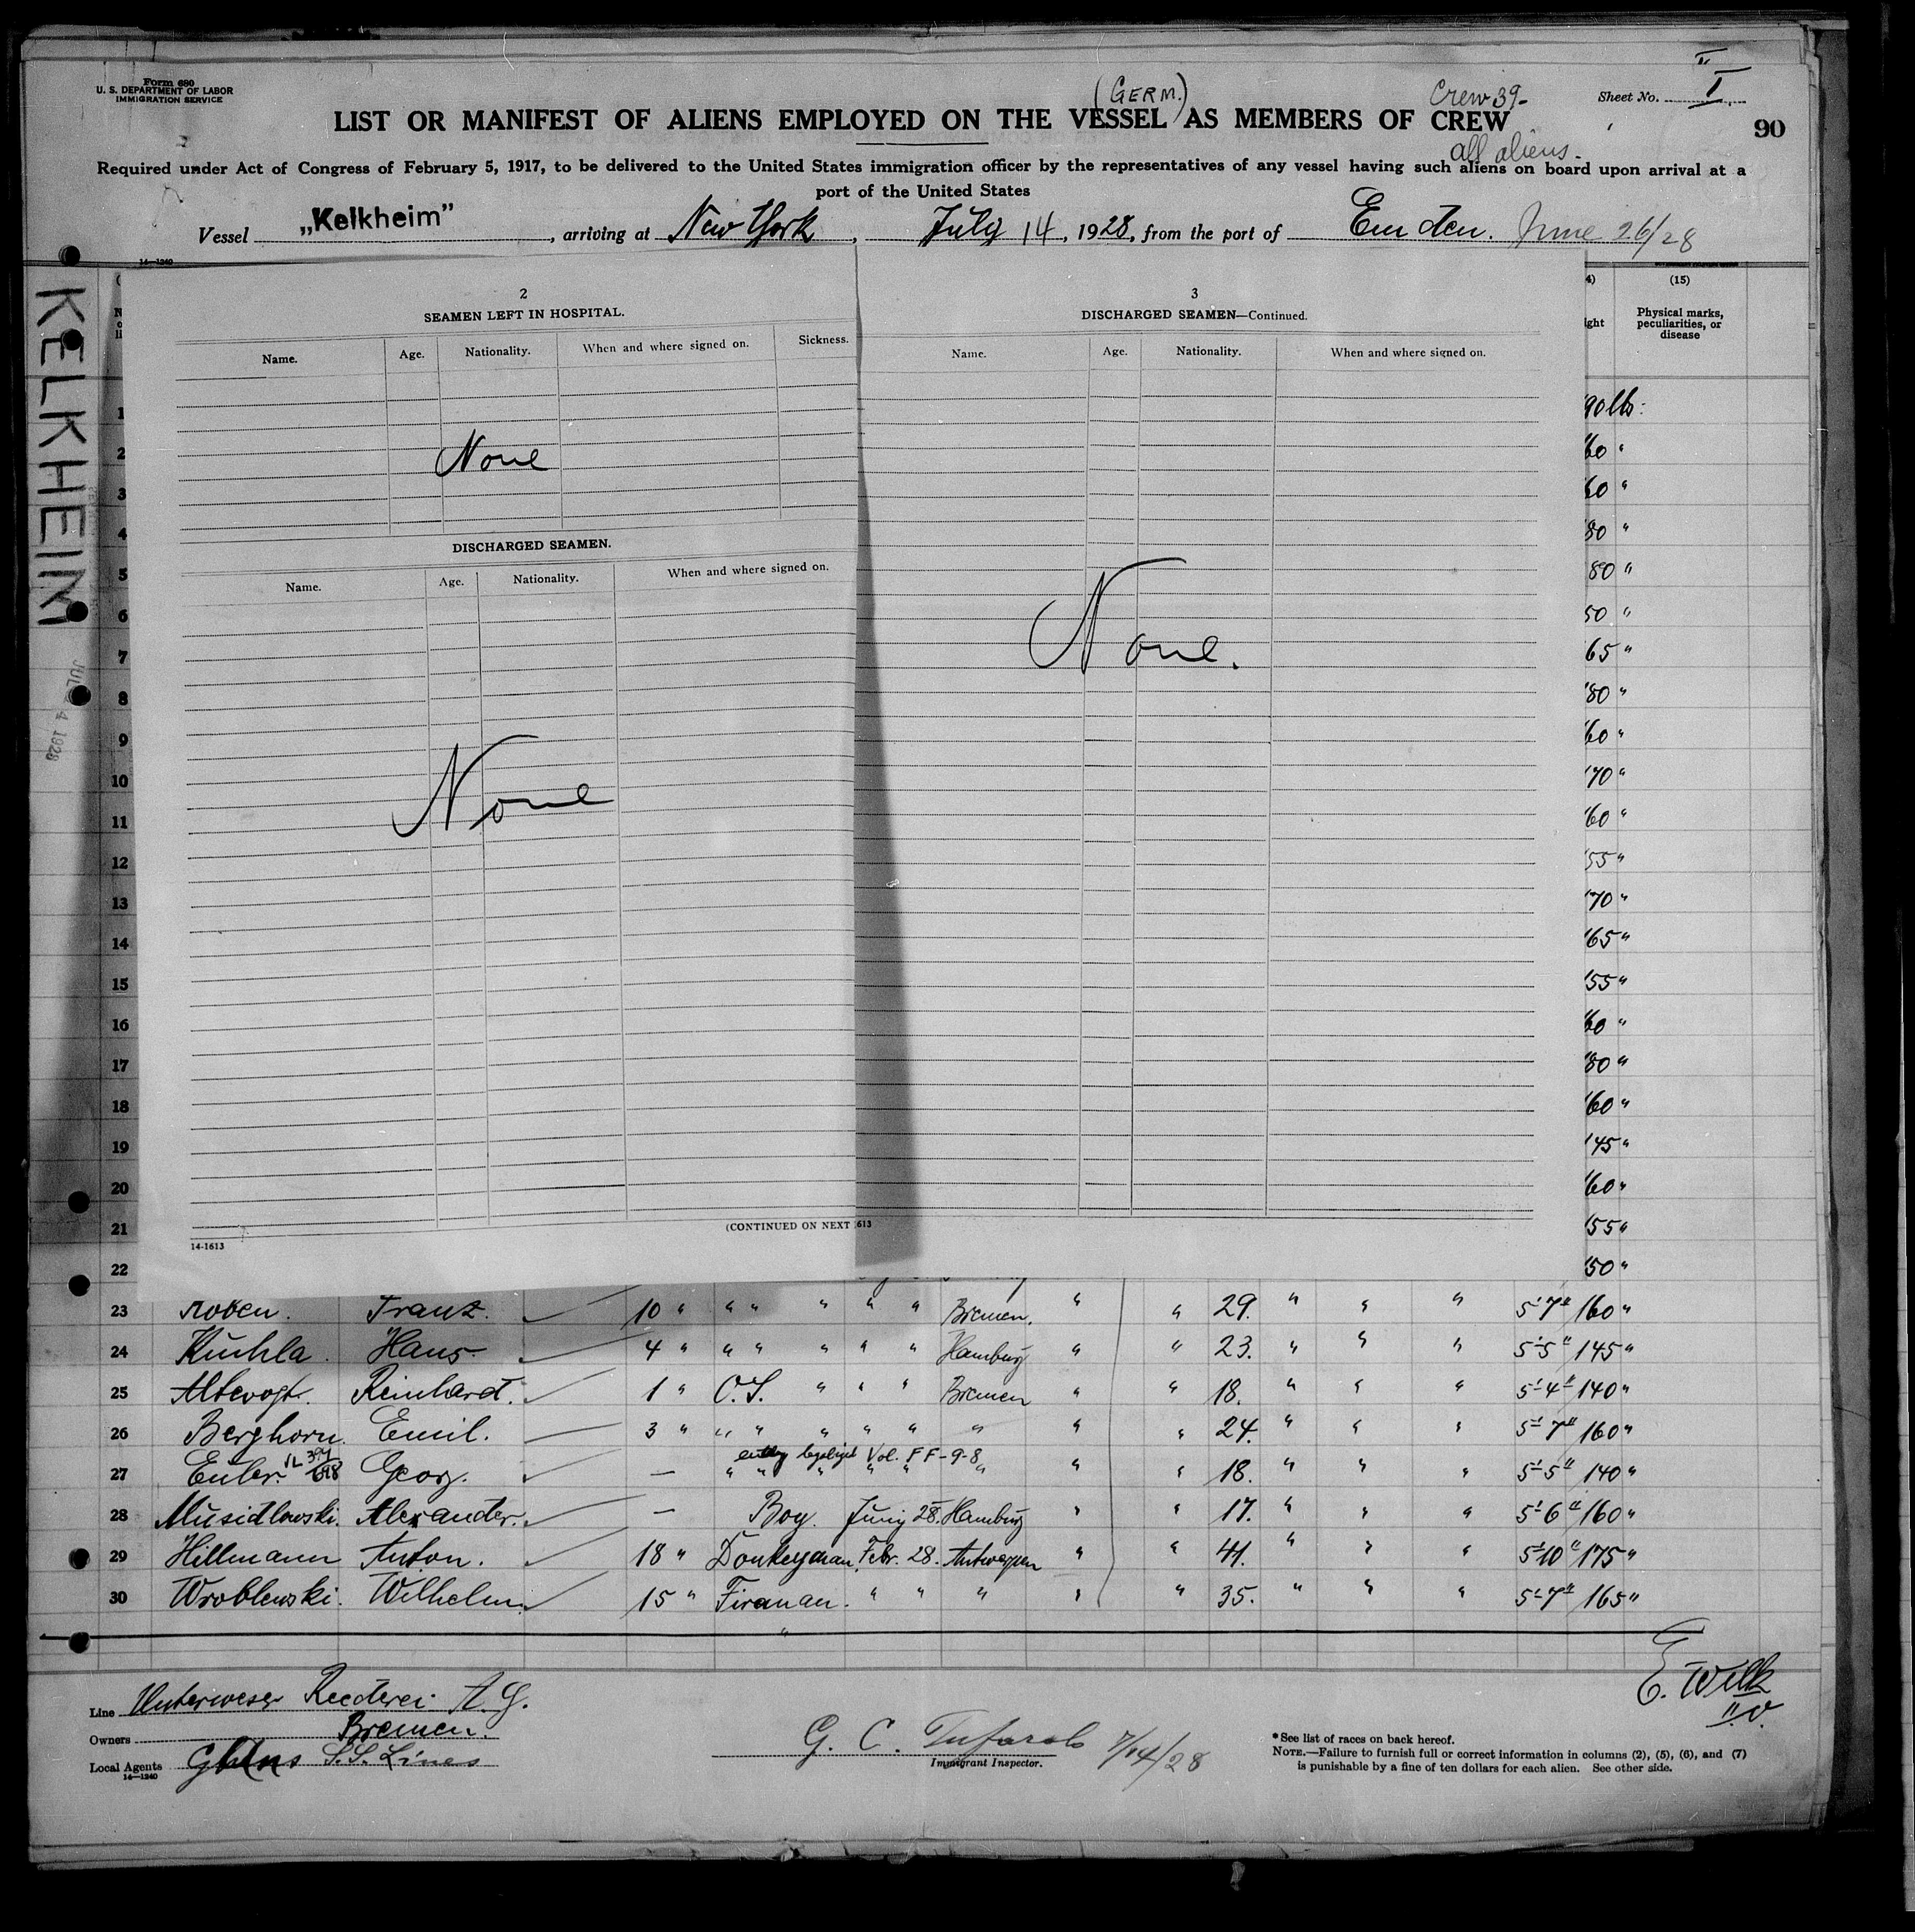 Form 680
U. S. DEPARTMENT OF LABOR
IMMIGRATION SERVICE
(GERM.)
Crew 39-
Sheet No. I
LIST OR MANIFEST OF ALIENS EMPLOYED ON THE VESSEL AS MEMBERS OF CREW
90
all aliens.
Required under Act of Congress of February 5, 1917, to be delivered to the United States immigration officer by the representatives of any vessel having such aliens on board upon arrival at a
port of the United States
Vessel „Kelkheim", arriving at New York, July 14, 1928, from the port of Emden. June 26/28
14-1240
KELKHEIM
1928
2
SEAMEN LEFT IN HOSPITAL.
Name. Age. Nationality. When and where signed on. Sickness.
None
DISCHARGED SEAMEN.
Name. Age. Nationality. When and where signed on.
None
(CONTINUED ON NEXT
14-1613
3
DISCHARGED SEAMEN—Continued.
Name. Age. Nationality. When and where signed on.
None.
613
4) (15)
ight Physical marks, peculiarities, or disease
1 90 lbs:
2 60 "
3 60 "
4 80 "
5 80 "
6 50 "
7 65 "
8 80 "
9 60 "
10 70 "
11 60 "
12 55 "
13 70 "
14 65 "
15 55 "
16 60 "
17 80 "
18 60 "
19 145 "
20 60 "
21 55 "
22 50 "
23 Roben. Franz. 10 " " " " " " Bremen. " " 29. " " " 5'7" 160 "
24 Kuhla. Hans. 4 " " " " " " Hamburg " " 23. " " " 5'5" 145 "
25 Altevogt. Reinhard. 1 " O.S. " " " Bremen " " 18. " " " 5'4" 140 "
26 Berghorn. Emil. 3 " " " " " " " " " 24. " " " 5'7" 160 "
Vol. FF-9-8
27 Euler. Georg. — " " " " " " " " 18. " " " 5'5" 140 "
28 Musidlowski. Alexander. — Boy. Juny 28. Hamburg " " 17. " " " 5'6" 160 "
29 Hillmann Anton. 18 " Donkeyman. Febr. 28. Antwerpen " " 41. " " " 5'10" 175 "
30 Wroblewski. Wilhelm. 15 " Fireman. " " " " " 35. " " " 5'7" 165 "
E. Wilk
II.O.
Line Unterweser Reederei A. G.
Owners Bremen.
Local Agents S.S. Lines
14-1240
G. C. 7/14/28
Immigrant Inspector.
*See list of races on back hereof.
NOTE.—Failure to furnish full or correct information in columns (2), (5), (6), and (7)
is punishable by a fine of ten dollars for each alien. See other side.